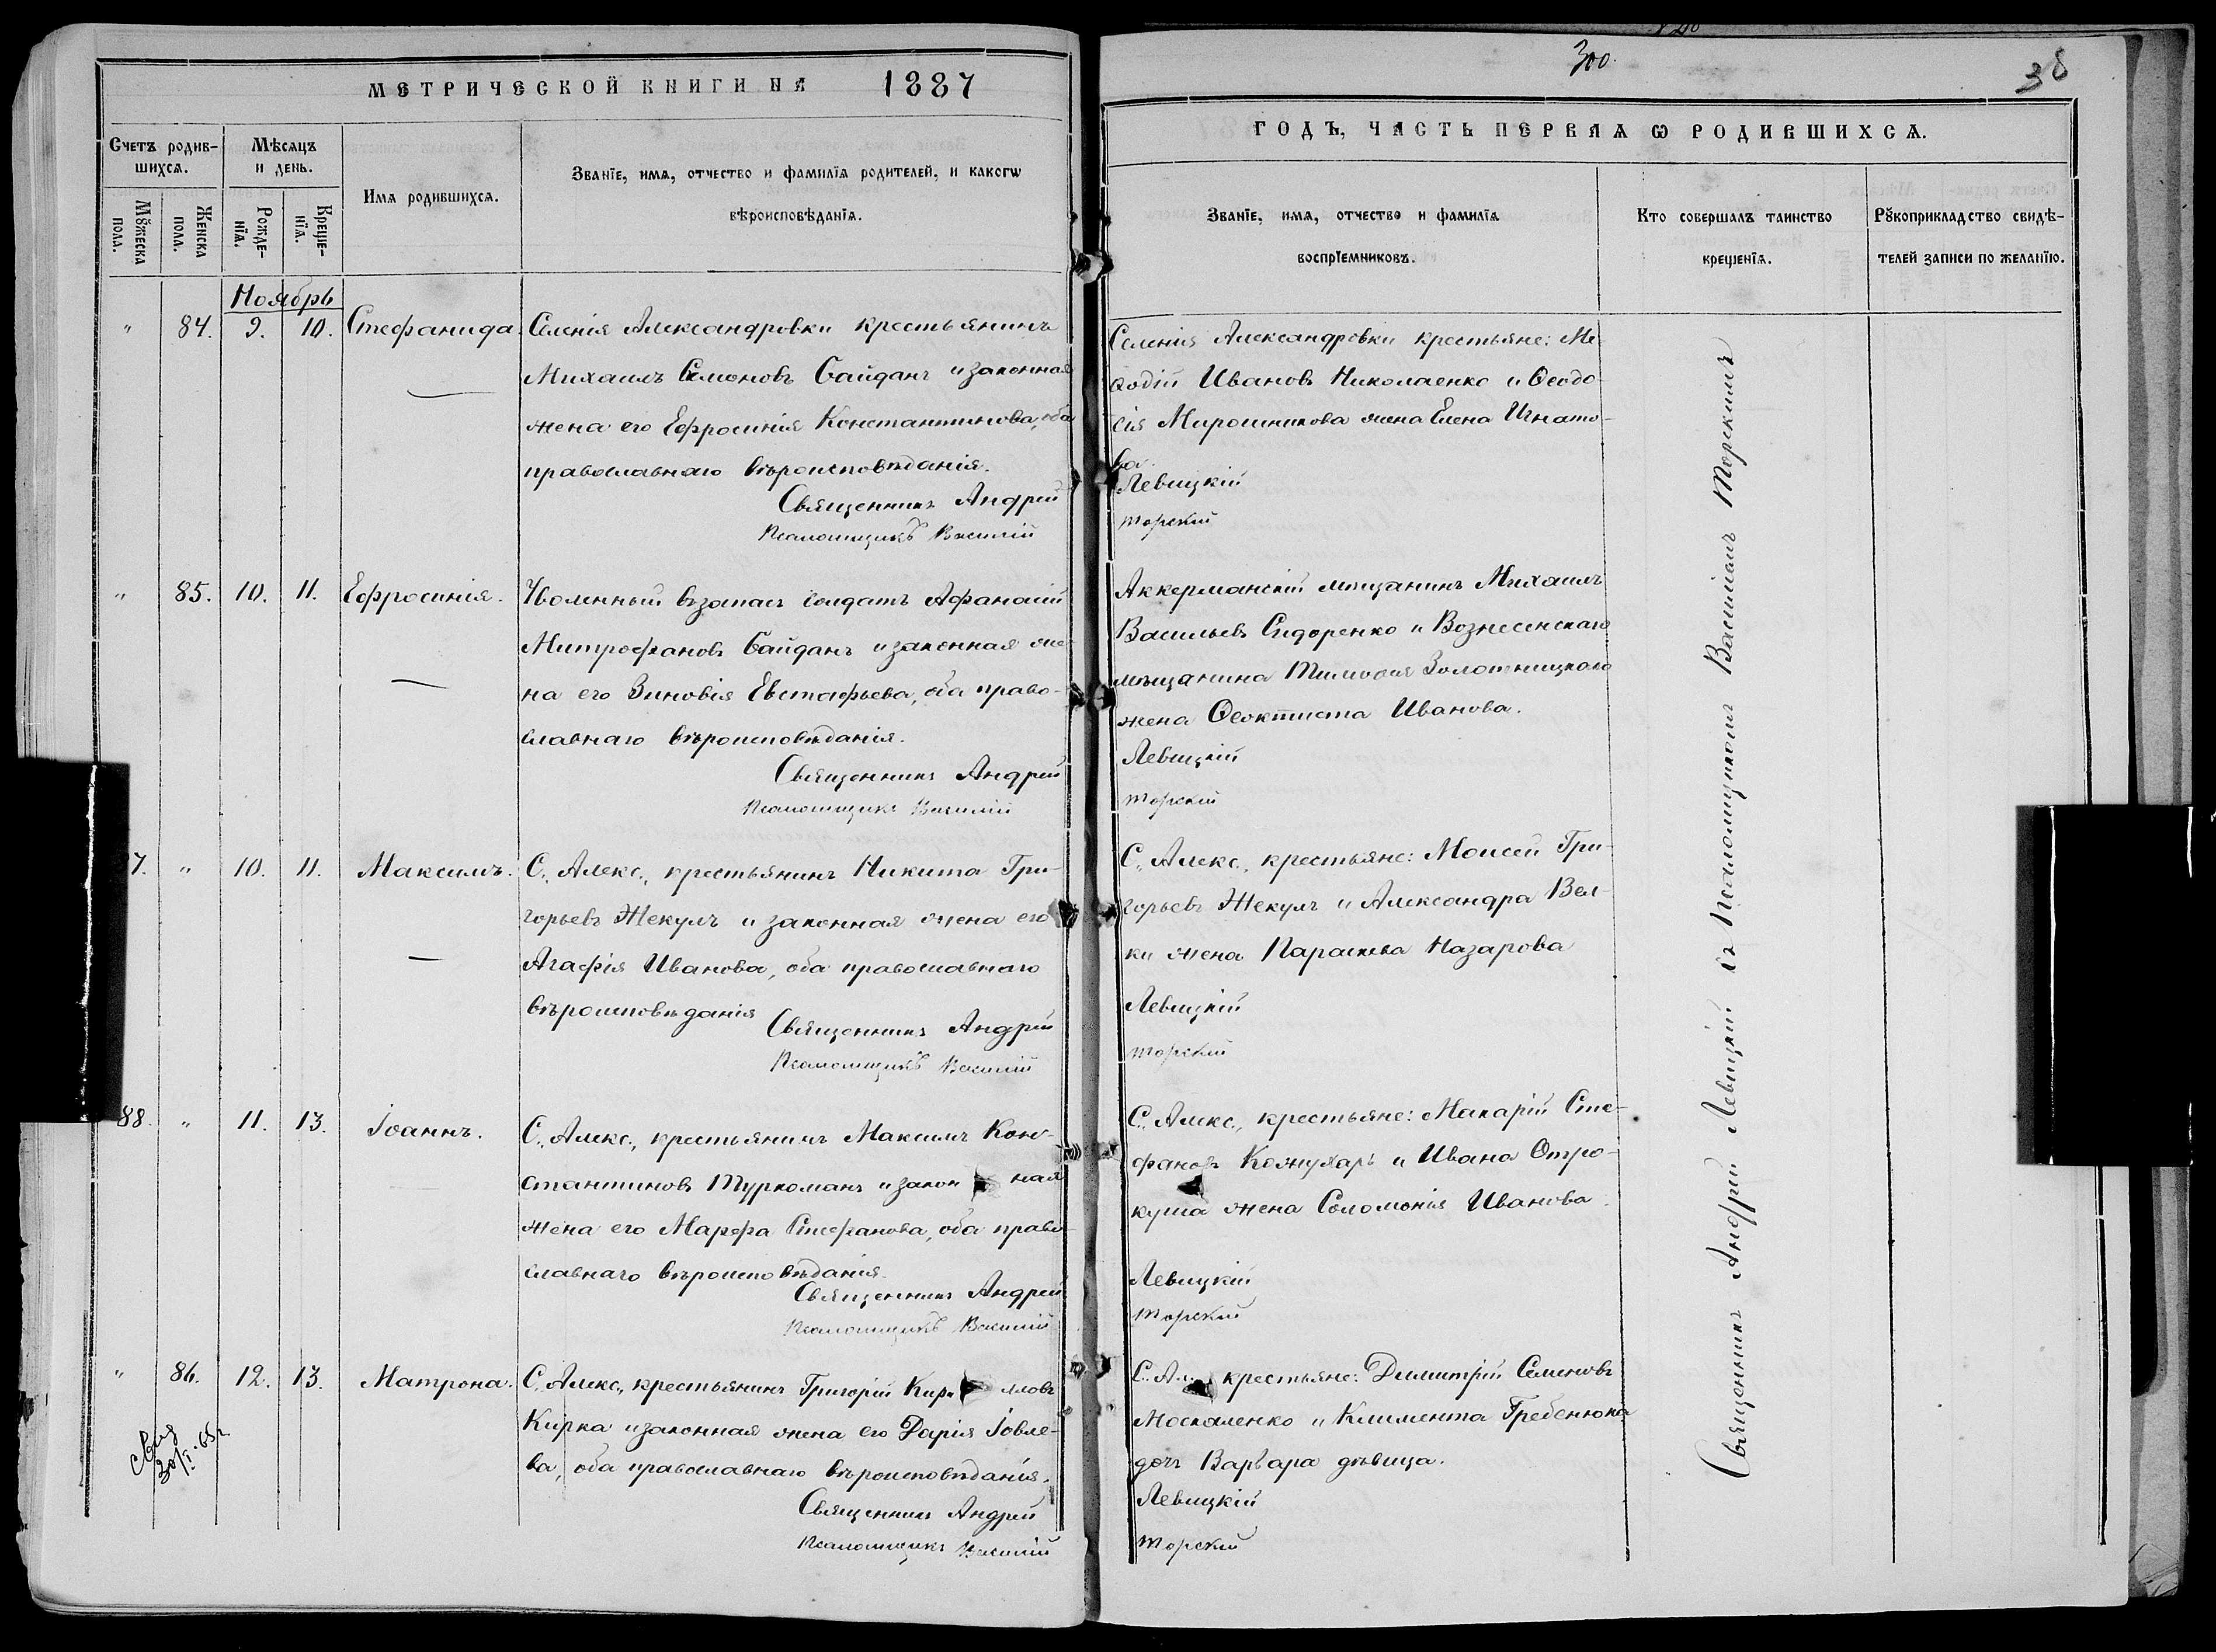 МЕТРИЧЕСКОЙ КНИГИ НА 1887
Счетъ родив-
шихся.
Мѣсяцъ
и день.
Имя родившихся.
Званїе, имя, отчество и фамилїя родителей, и какогѡ
вѣроисповѣданїя.
Мꙋжеска
пола.
Женска
пола.
Рожде-
нїя.
Креще-
нїя.
Ноябрь
" 84. 9. 10. Стефанида. Селенія Александровки крестьянинъ
Михаилъ Симоновъ Сайданъ и законная
жена его Ефросинія Константинова, оба
православнаго вѣроисповѣданія.
Священникъ Андрей
Псаломщикъ Василій
" 85. 10. 11. Ефросинія. Уволенный въ запасъ солдатъ Афанасій
Митрофановъ Сайданъ и законная же-
на его Зиновія Евстафьева, оба право-
славнаго вѣроисповѣданія.
Священникъ Андрей
Псаломщикъ Василій
7. " 10. 11. Максимъ. С. Алекс., крестьянинъ Никита Гри-
горьевъ Жекулъ и законная жена его
Агафія Иванова, оба православнаго
вѣроисповѣданія
Священникъ Андрей
Псаломщикъ Василій
88. " 11. 13. Іоаннъ. С. Алекс., крестьянинъ Максимъ Кон-
стантиновъ Туркоманъ и закон ная
жена его Марфа Стефанова, оба право-
славнаго вѣроисповѣданія.
Священникъ Андрей
Псаломщикъ Василій
" 86. 12. 13. Матрона. С. Алекс., крестьянинъ Григорій Кири лловъ
Кирка и законная жена его Дарія Іовле-
ва, оба православнаго вѣроисповѣданія.
Священникъ Андрей
Псаломщикъ Василій
300.
38
ГОДЪ, ЧАСТЬ ПЕРВАЯ Ѡ РОДИВШИХСЯ.
Званїе, имя, отчество и фамилїя
воспрїемниковъ.
Кто совершалъ таинство
крещенїя.
Рꙋкоприкладство свидѣ-
телей записи по желанїю.
Селенія Александровки крестьяне: Ме-
ѳодій Ивановъ Николаенко и Ѳеодо-
сія Мирошникова жена Елена Игнато-
ва.
Левицкій
Торскій
Аккерманскій мѣщанинъ Михаилъ
Васильевъ Сидоренко и Вознесенскаго
мѣщанина Тимоѳея Золотницкаго
жена Ѳеоктиста Иванова.
Левицкій
Торскій
С. Алекс., крестьяне: Моисей Гри-
горьевъ Жекулъ и Александра Вел-
ки жена Параскева Назарова
Левицкій
Торскій
С. Алекс., крестьяне: Макарій Сте-
фановъ Кожухарь и Ивана Отро-
куша жена Соломонія Иванова.
Левицкій
Торскій
С. Ал. крестьяне: Димитрій Семеновъ
Москаленко и Климента Гребенюка
дочь Варвара дѣвица.
Левицкій
Торскій
Священникъ Андрей Левицкій съ Псаломщикомъ Василіемъ Торскимъ